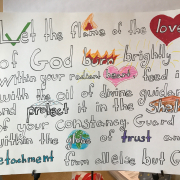 Let the flame of the love
of God burn brightly
Within your radiant heart feed it
with the oil of divine guidance
and protect it in the shelter
of your Constancy Guard it
within the of trust and
etachment from all else but God